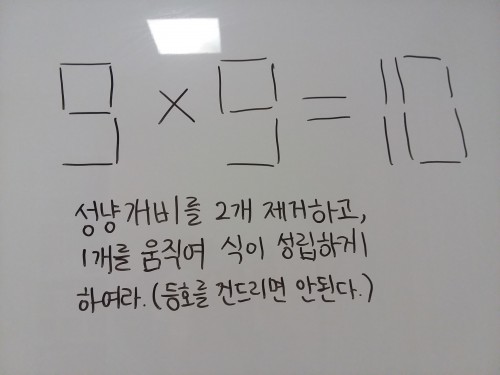 9 × 9 = 10
성냥개비를 2개 제거하고,
1개를 움직여 식이 성립하게
하여라. (등호를 건드리면 안된다.)